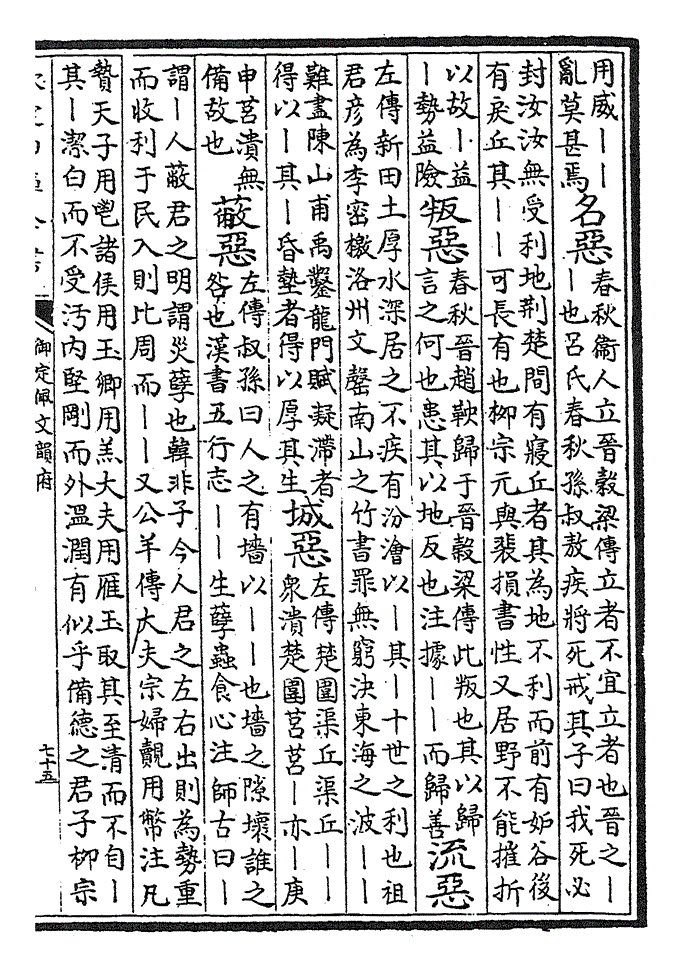 用威——
亂莫甚焉
名惡
春秋衞人立晉穀梁傳立者不宜立者也晉之—
—也呂氏春秋孫叔敖疾將死戒其子曰我死必
封汝汝無受利地荆楚間有寢丘者其為地不利而前有妬谷後
有戾丘其——可長有也栁宗元與裴損書性又居野不能摧折
以故—益
—勢益險
叛惡
春秋晉趙鞅歸于晉穀梁傳此叛也其以歸
言之何也患其以地反也注據——而歸善
流惡
左傳新田土厚水深居之不疾有汾澮以—其—十世之利也祖
君彦為李密檄洛州文罄南山之竹書罪無窮決東海之波——
難盡陳山甫禹鑿龍門賦疑滯者
得以—其—昏墊者得以厚其生
城惡
左傳楚圍渠丘渠丘——
衆潰楚圍莒莒—亦—庚
申莒潰無
備故也
蔽惡
左傳叔孫曰人之有墻以——也墻之隙壞誰之
咎也漢書五行志——生孽蟲食心注師古曰—
謂—人蔽君之明謂災孽也韓非子今人君之左右出則為勢重
而收利于民入則比周而——又公羊傳大夫宗婦覿用幣注凡
贄天子用鬯諸侯用玉卿用羔大夫用雁玉取其至清而不自—
其—潔白而不受汚内堅剛而外溫潤有似乎備德之君子栁宗
御定佩文韻府
七十五